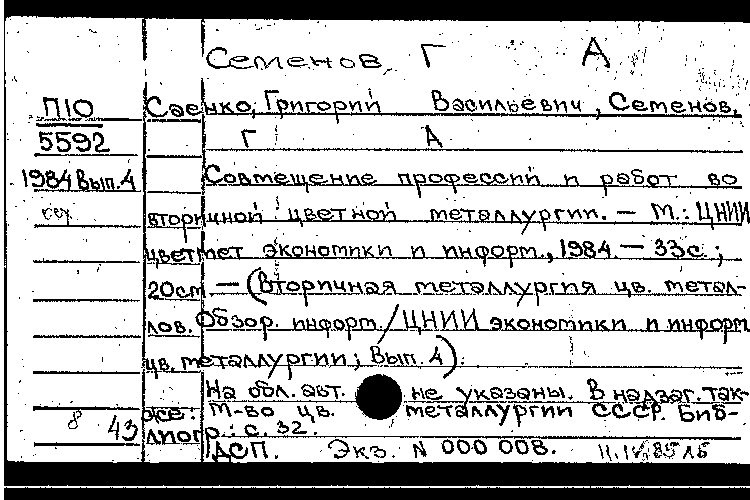 Семенов, Г А
П10 Саенко, Григорий Васильевич, Семенов,
5592 Г А
1984 Вып.4 Совмещение профессий и работ во
вторичной цветной металлургии. — М.: ЦНИИ
цветмет экономики и информ., 1984. — 33с.;
20см. — (Вторичная металлургия цв. метал-
лов. Обзор. информ./ЦНИИ экономики и информ
цв. металлургии; Вып. 4).
На обл. авт. не указаны. В надзаг. так-
же: М-во цв. металлургии СССР. Биб-
8 43 лиогр.: с. 32.
ДСП. Экз. N 000 008.